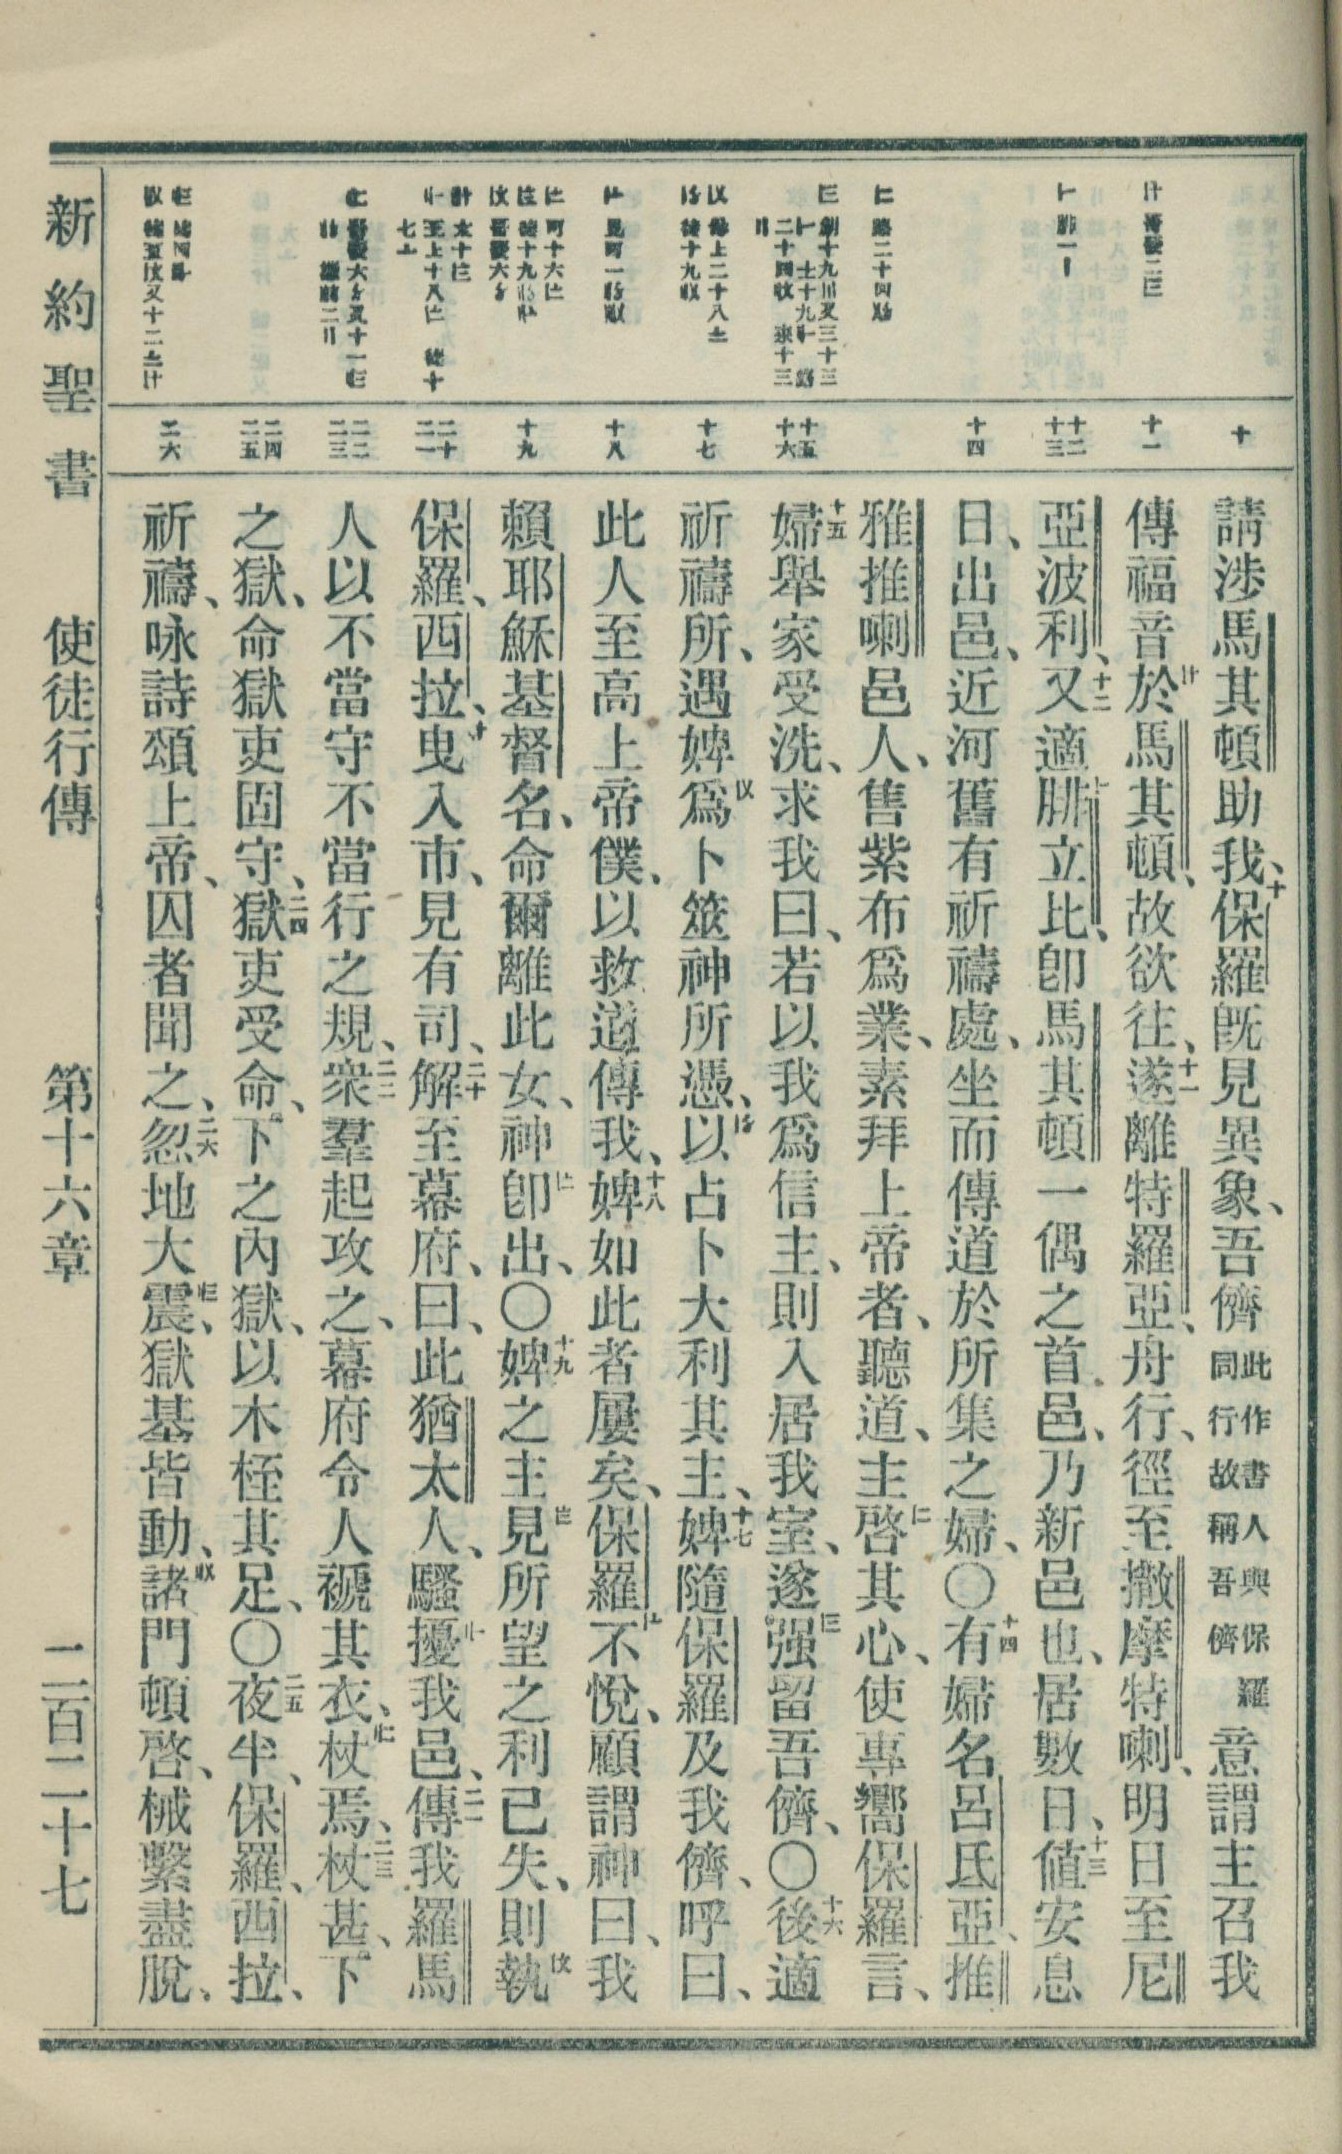 請涉馬其頓助我、十保羅旣見異象、吾儕此作書人與保羅同行故稱吾儕意謂主召我
傳福音於馬其頓、故欲往、十一遂離特羅亞、舟行、徑至撒摩特喇、明日至尼
亞波利、十二又適腓立比、卽馬其頓一偶之首邑、乃新邑也、居數日、十三値安息
日、出邑、近河舊有祈禱處、坐而傳道於所集之婦、〇十四有婦名呂氐亞、推
雅推喇邑人、售紫布爲業、素拜上帝者、聽道、主啓其心、使專嚮保羅言、
十五婦舉家受洗、求我曰、若以我爲信主、則入居我室、遂强留吾儕、〇十六後適
祈禱所、遇婢爲卜筮神所憑、以占卜大利其主、十七婢隨保羅及我儕、呼曰、
此人至高上帝僕、以救道傳我、十八婢如此者屢矣、保羅不悅、顧謂神曰、我
賴耶穌基督名、命爾離此女、神卽出、〇十九婢之主見所望之利已失、則執
保羅、西拉、曳入市、見有司、二十解至幕府、曰、此猶太人、騷擾我邑、二一傳我羅馬
人以不當守不當行之規、二二衆羣起攻之、幕府令人褫其衣、杖焉、二三杖甚、下
之獄、命獄吏固守、二四獄吏受命、下之內獄、以木桎其足、〇二五夜半、保羅、西拉、
祈禱、咏詩頌上帝、囚者聞之、二六忽地大震、獄基皆動、諸門頓啓、械繫盡脫、
十
十一
十二
十三
十四
十五
十六
十七
十八
十九
二十
二一
二二
二三
二四
二五
二六
新約聖書 使徒行傳 第十六章 二百二十七